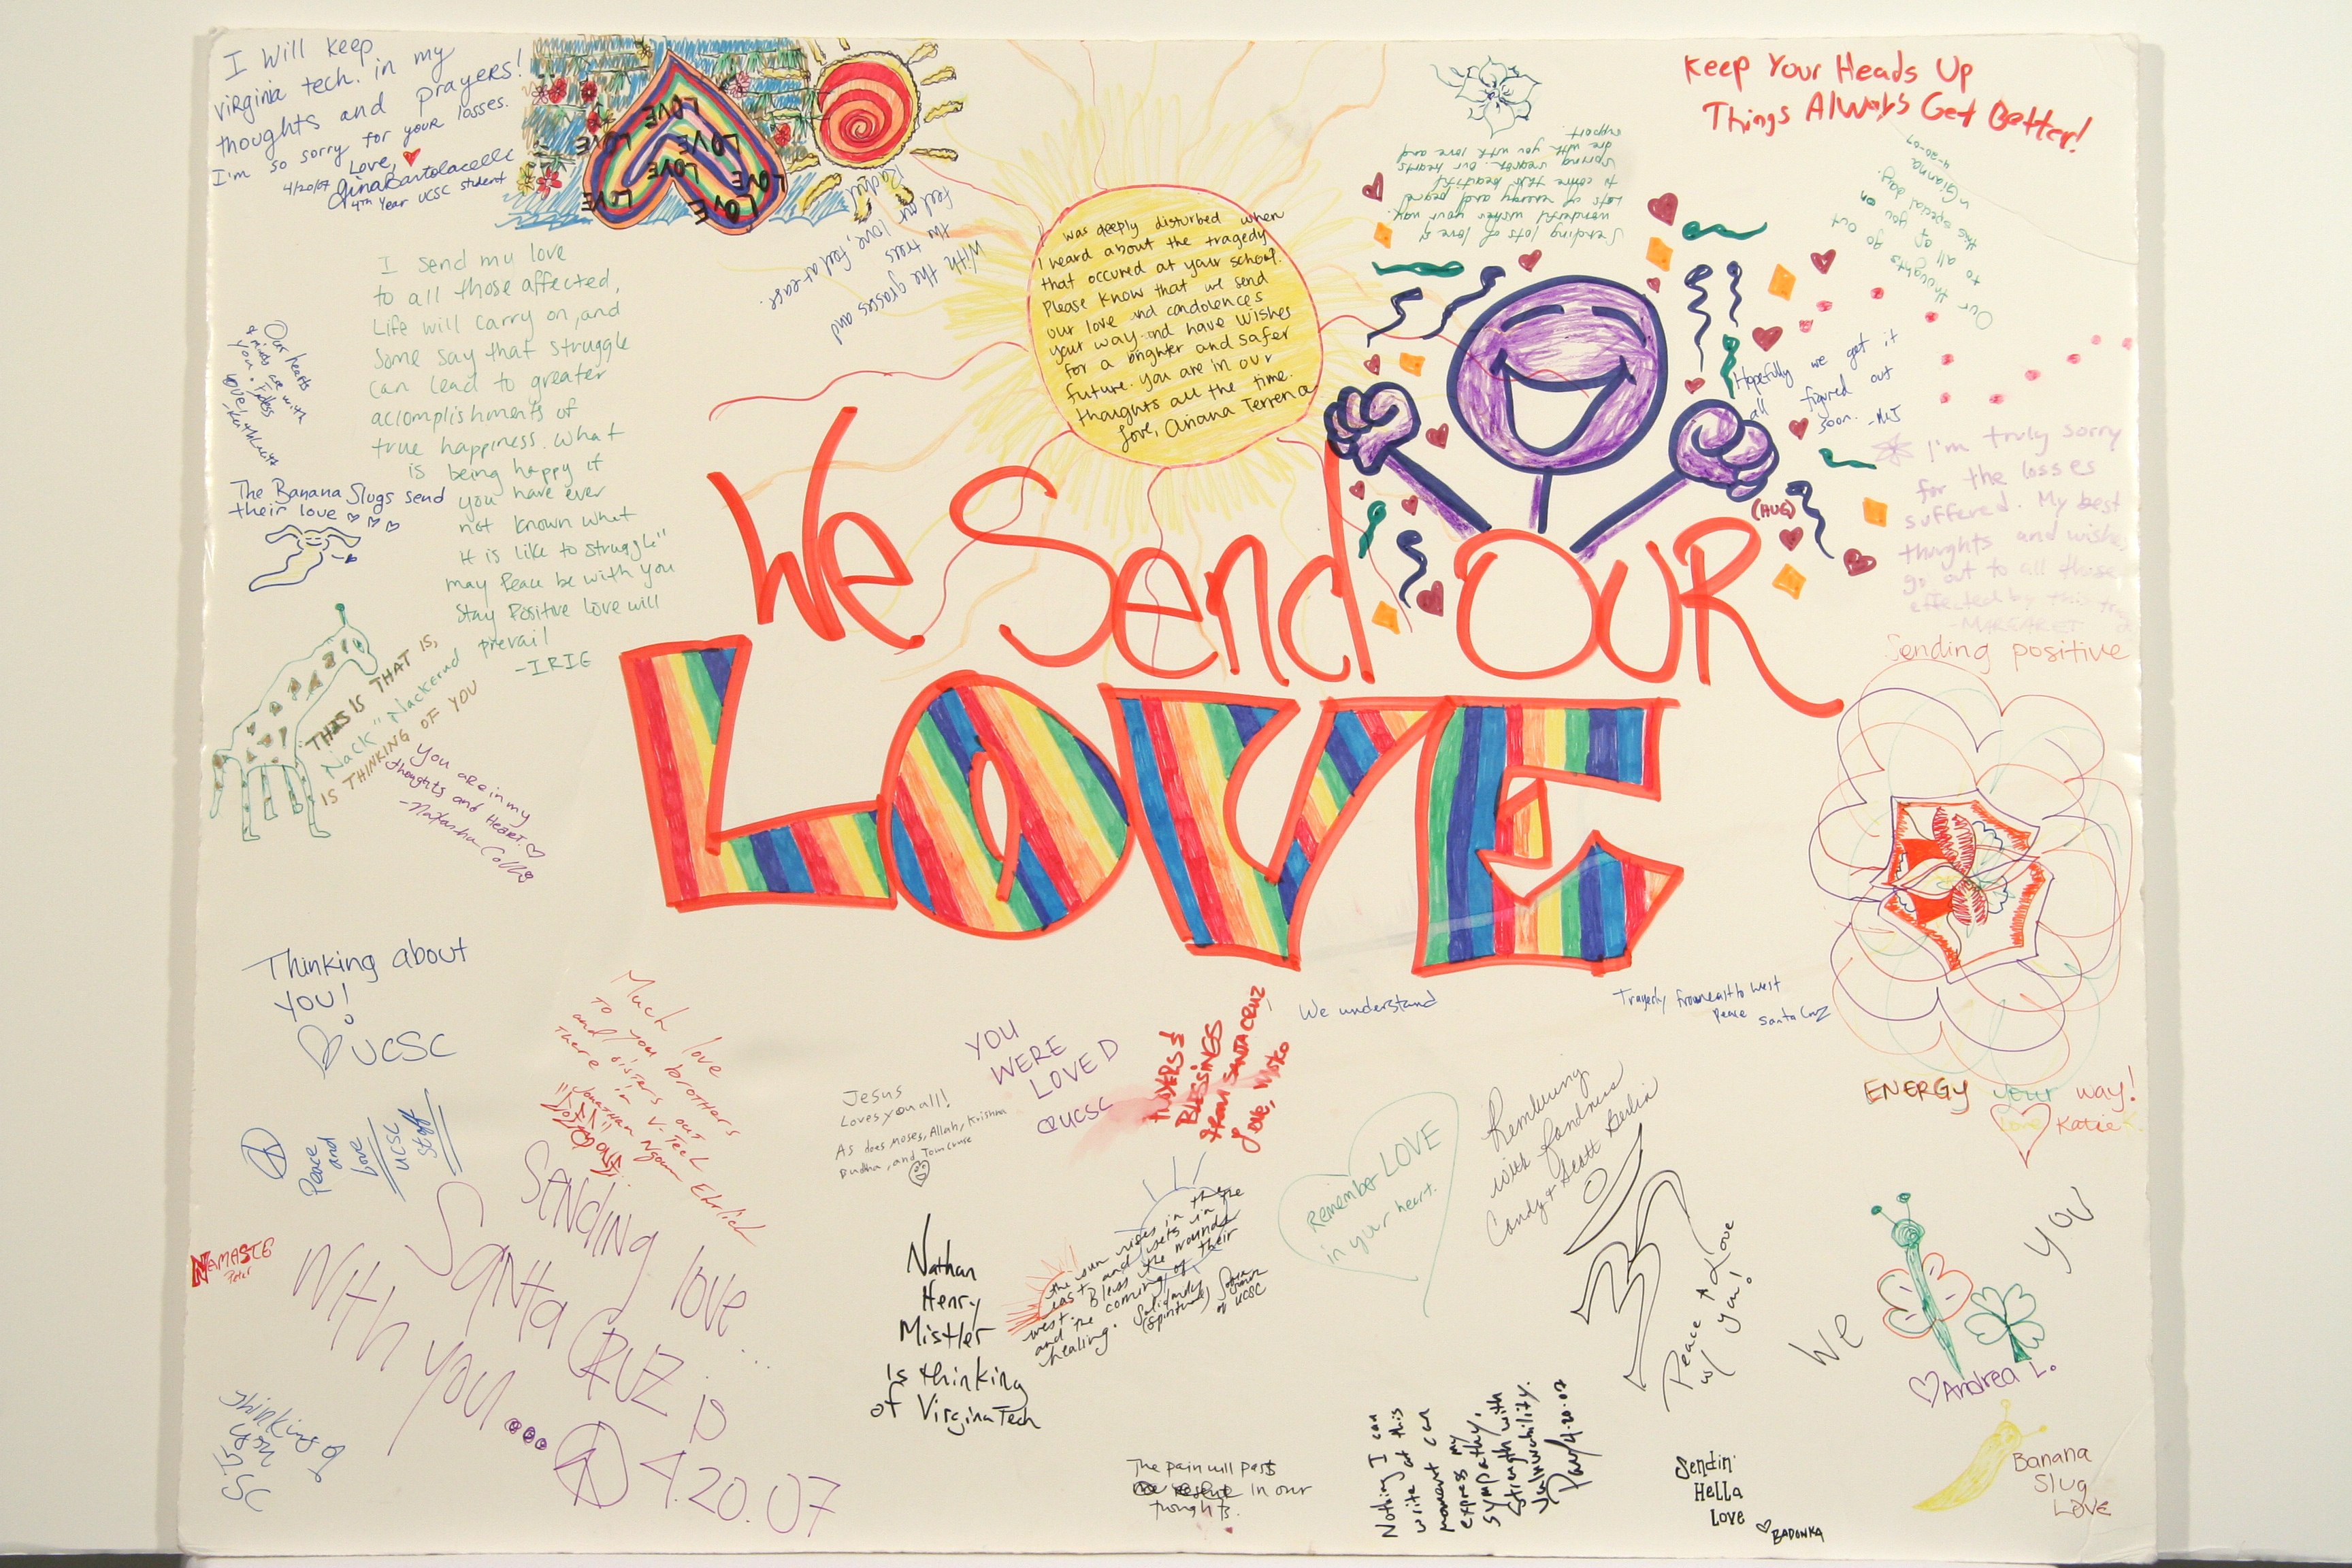 I Will keep
Virginia tech. in my
thoughts and prayers!
I'm so sorry for your losses.
Love,
4/20/07 Gina Bartolacelli
4th Year UCSC student
LOVE
LOVE
LOVE
LOVE
LOVE
LOVE
LOVE
LOVE
LOVE
With the grasses and
the trees
feel our love, feel at ease.
Rachel
was deeply disturbed when
I heard about the tragedy
that occured at your school.
Please know that we send
our love and condolences
your way and have wishes
for a brighter and safer
future. you are in our
thoughts all the time.
Love, Ariana Terrena
Sending lots of love &
wonderful wishes your way.
Lots of energy and
to come this beautiful
spring season. Our hearts
are with you with love and
support.
Keep Your Heads Up
Things Always Get Better!
Our thoughts go out
to all of you on
this special day.
Gianna
4-20-07
Hopefully we get it
all figured out
soon. -MJ
(HUG)
I'm truly sorry
for the losses
suffered. My best
thoughts and wishes
go out to all those
effected by this
-MARGARET
I send my love
to all those affected,
Life will carry on, and
Some say that struggle
can lead to greater
accomplishments of
true happiness. What
is being happy if
you have ever
not known what
it is like to struggle"
may Peace be with you
Stay Positive Love will
prevail
-IRIE
Our hearts
& minds are with
you.
Love,
The Banana Slugs send
their love
THIS IS THAT IS,
"Nack" Nackerund
IS THINKING OF YOU
You are in my
thoughts and Heart.
-Natasha
We Send OUR
LOVE
Sending positive
ENERGY your way!
Love Katie
Thinking about
YOU!
UCSC
Much love
To you brothers
and sisters out
there in V-Tech
Jonathan Ngoun Ehrlich
Peace
and
Love
UCSC
Staff
YOU
WERE
LOVED
@UCSC
BLESSINGS
from SANTA CRUZ
We understand
Tragedy from east to West
Peace Santa Cruz
Jesus
Loves you all!
As does Moses, Allah, Krishna
Budha, and Tom Cruise
Remember LOVE
in your heart.
Rembring
with fondness
Candy + Scott Berlin
NAMASTE
Peter
SENDING love...
SANTA CRUZ is
With you...
4.20.07
Nathan
Henry
Mistler
is thinking
of Virgina Tech
the sun rises in the
east and sets in the
west. Bless the wounds
and the coming of their
healing. Solidarity
(spiritual)
of UCSC
Peace & Love
w/ you!
We
YOU
Andrea L.
thinking of
you
The pain will past
in our
thoughts.
Nothing I can
write at this
moment can
express my
sympathy.
Strength with
Vulnerability.
4.20.07
Sendin'
Hella
Love
BADONKA
Banana
Slug
LOVE